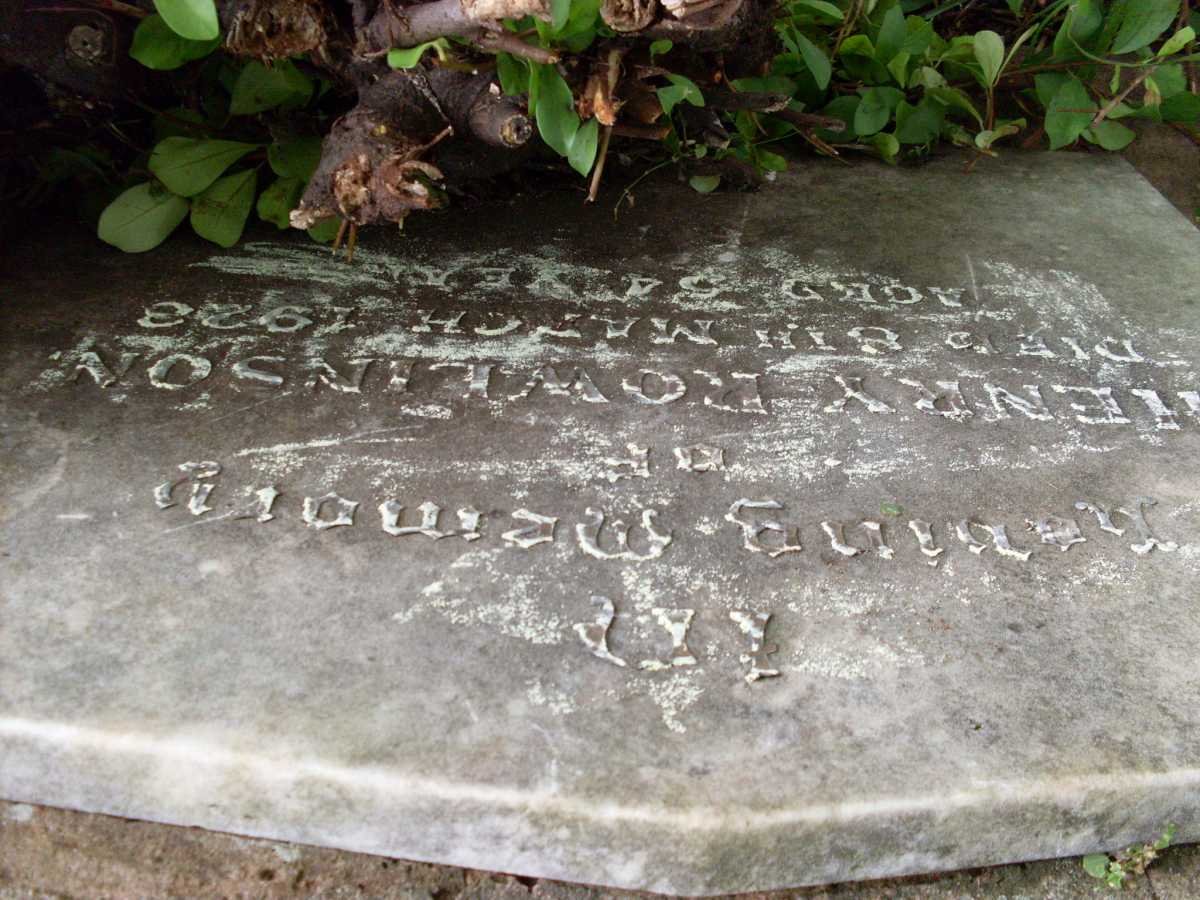 In
Loving Memory
OF
HENRY ROWLINSON
DIED 8TH MARCH 1928
AGED 54 YEARS